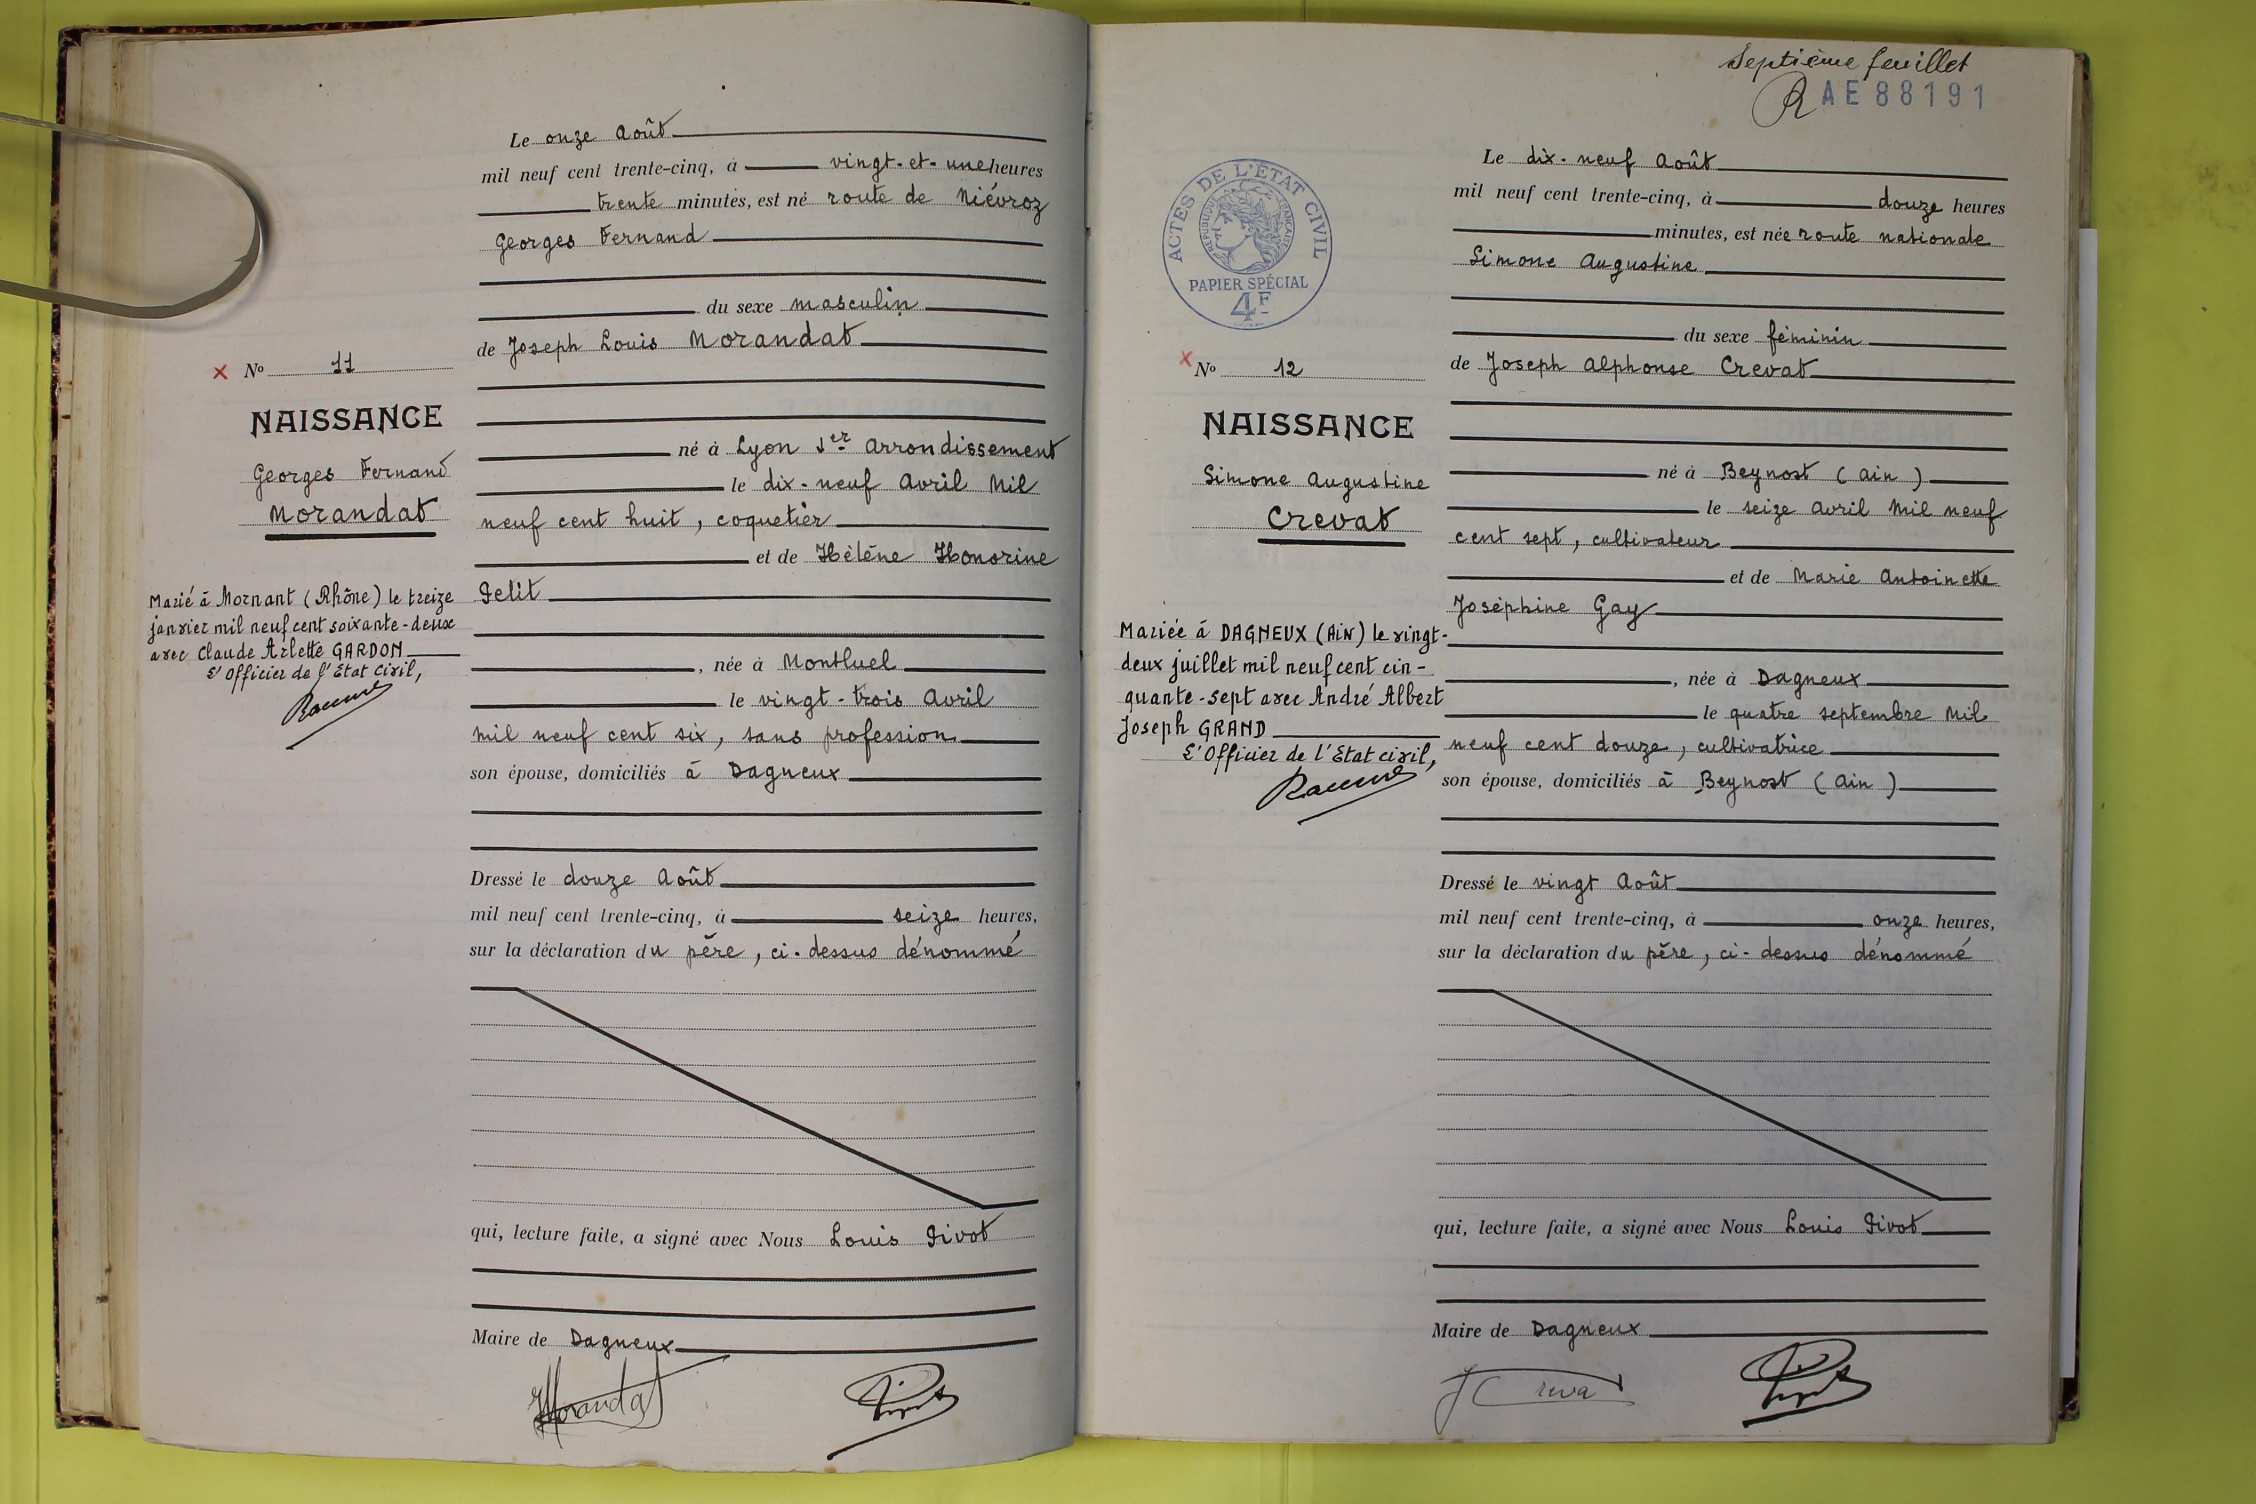 Le onze Août
mil neuf cent trente-cinq, à vingt-et-une heures
trente minutes, est né route de Niévroz
Georges Fernand
du sexe masculin
de Joseph Louis Morandat
né à Lyon 1er Arrondissement
le dix-neuf Avril Mil
neuf cent huit, coquetier
et de Hélène Honorine
née à Montluel
le vingt-trois Avril
mil neuf cent six, sans profession
son épouse, domiciliés à Dagneux
Dressé le douze Août
mil neuf cent trente-cinq, à seize heures,
sur la déclaration du père, ci-dessus dénommé
qui, lecture faite, a signé avec Nous Louis Pivot
Maire de Dagneux
Morandat
Pivot
No 11
NAISSANCE
Georges Fernand
Morandat
Marié à Mornant (Rhône) le treize
janvier mil neuf cent soixante-deux
avec Claude Arlette GARDON
L'Officier de l'Etat Civil,
Septième feuillet
AE88191
ACTES DE L'ÉTAT CIVIL
RÉPUBLIQUE FRANÇAISE
PAPIER SPÉCIAL
4F
No 12
NAISSANCE
Simone Augustine
Crevat
Mariée à DAGNEUX (AiN) le vingt-
deux juillet mil neuf cent cin-
quante-sept avec André Albert
Joseph GRAND
L'Officier de l'Etat civil,
Le dix-neuf Août
mil neuf cent trente-cinq, à douze heures
minutes, est née route nationale
Simone Augustine
du sexe féminin
de Joseph Alphonse Crevat
né à Beynost (Ain)
le seize Avril Mil neuf
cent sept, cultivateur
et de Marie Antoinette
Joséphine Gay
, née à Dagneux
le quatre septembre Mil
neuf cent douze, cultivatrice
son épouse, domiciliés à Beynost (Ain)
Dressé le vingt Août
mil neuf cent trente-cinq, à onze heures,
sur la déclaration du père, ci-dessus dénommé
qui, lecture faite, a signé avec Nous Louis Pivot
Maire de Dagneux
J Creva
Pivot